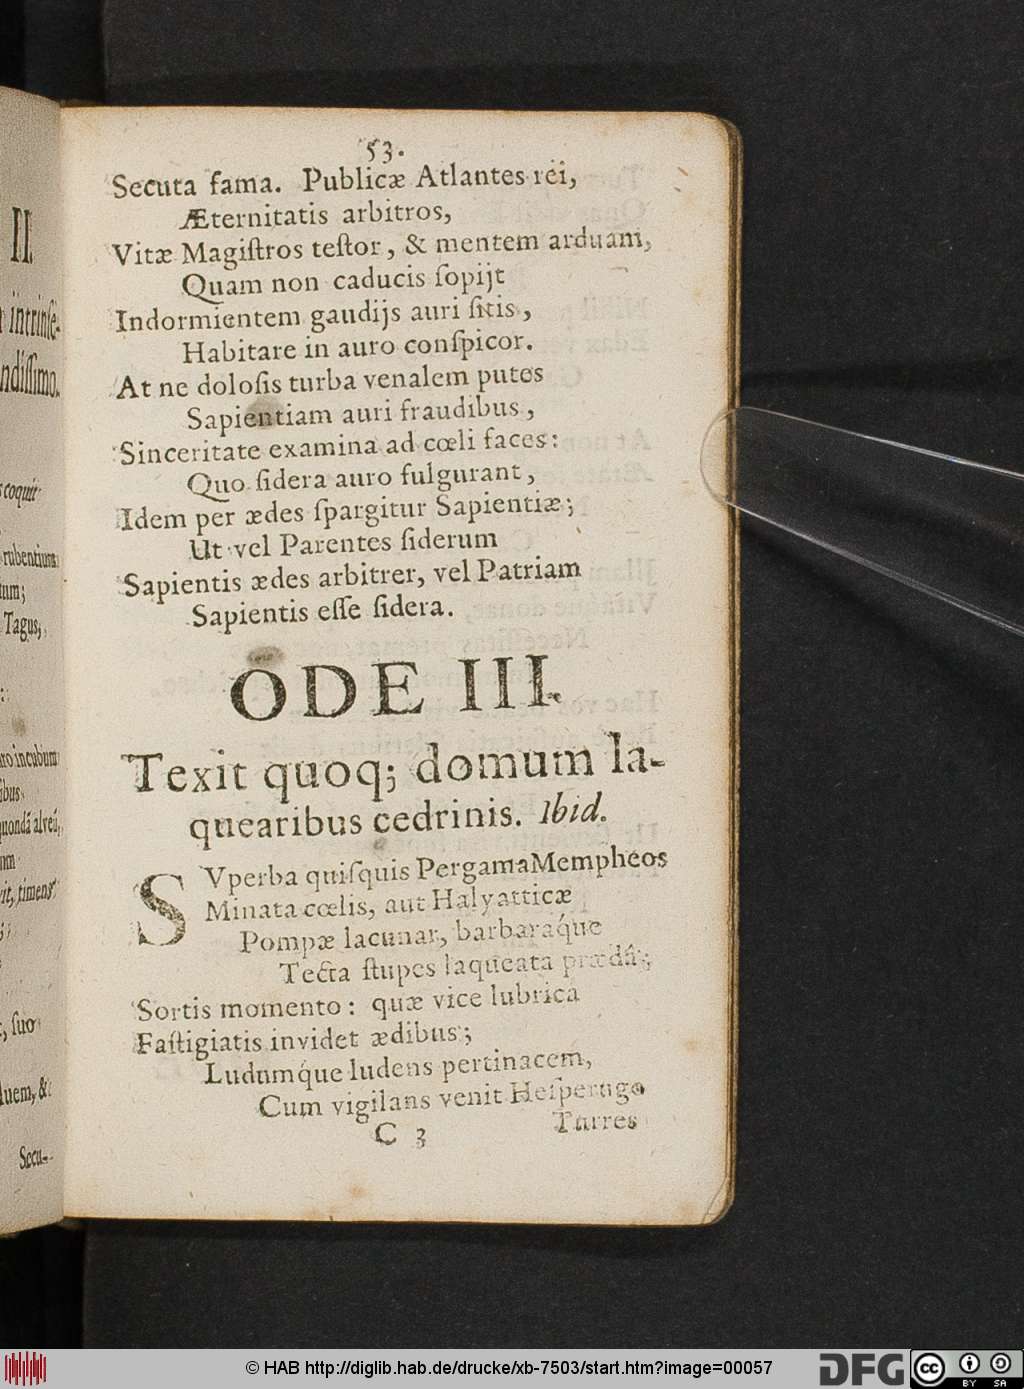 II.
intrinse-
ndissimo.
coquit
rubentium
tum;
Tagus,
incubum
ibus
quondã alveũ,
um
vit, timens
suo
luem, &
Secu-
53.
Secuta fama. Publicæ Atlantes rei,
Æternitatis arbitros,
Vitæ Magiſtros teſtor, & mentem arduam,
Quam non caducis ſopijt
Indormientem gaudijs auri ſitis,
Habitare in auro conſpicor.
At ne doloſis turba venalem putes
Sapientiam auri fraudibus,
Sinceritate examina ad cœli faces:
Quo ſidera auro fulgurant,
Idem per ædes ſpargitur Sapientiæ;
Ut vel Parentes ſiderum
Sapientis ædes arbitrer, vel Patriam
Sapientis eſſe ſidera.
ODE III.
Texit quoq; domum la-
quearibus cedrinis. Ibid.
SVperba quiſquis Pergama Mempheos
Minata cœlis, aut Halyatticæ
Pompæ lacunar, barbaráque
Tecta ſtupes laqueata prædâ;
Sortis momento: quæ vice lubrica
Faſtigiatis invidet ædibus;
Ludumq́ue ludens pertinacem,
Cum vigilans venit Heſperugo
C 3 Turres
© HAB http://diglib.hab.de/drucke/xb-7503/start.htm?image=00057
DFG
cc BY SA